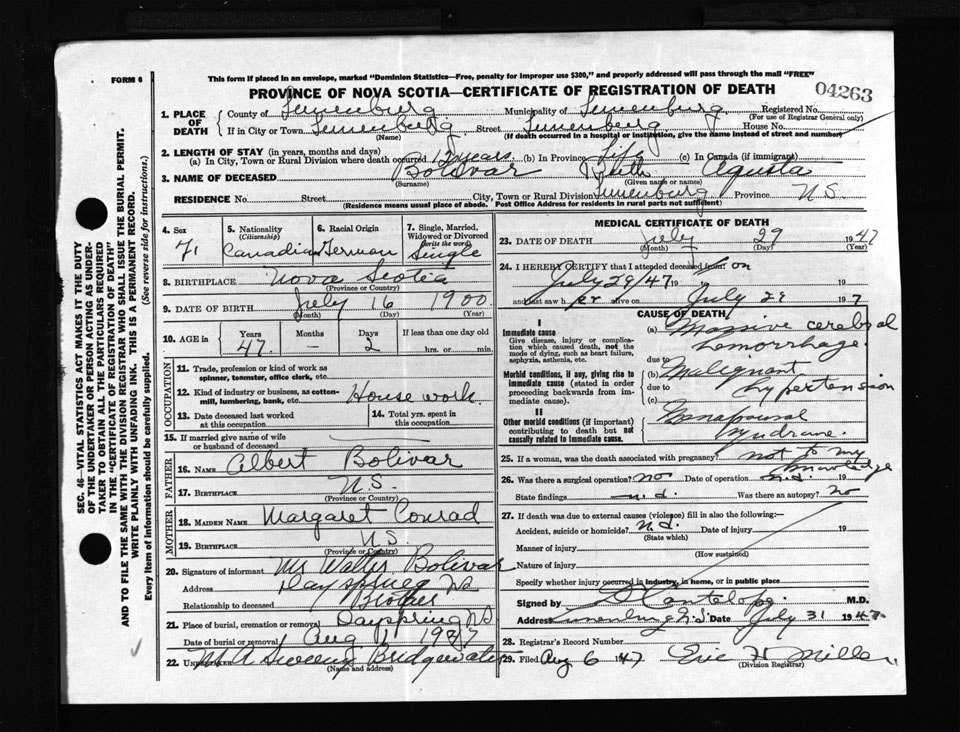 FORM 6
This form if placed in an envelope, marked "Dominion Statistics—Free, penalty for improper use $300," and properly addressed will pass through the mail "FREE"
PROVINCE OF NOVA SCOTIA—CERTIFICATE OF REGISTRATION OF DEATH
04263
1. PLACE OF DEATH County of Lunenburg Municipality of Lunenburg Registered No.
(For use of Registrar General only)
If in City or Town Lunenburg Street Lunenburg House No.
(Name) (If death occurred in a hospital or institution, give the name instead of street and number)
2. LENGTH OF STAY (in years, months and days)
(a) In City, Town or Rural Division where death occurred 12 years (b) In Province Life (c) In Canada (if immigrant)
3. NAME OF DECEASED Bolivar Agusta
(Surname) (Given name or names)
RESIDENCE No. Street City, Town or Rural Division Lunenburg Province N.S.
(Residence means usual place of abode. Post Office Address for residents in rural parts not sufficient)
SEC. 46—VITAL STATISTICS ACT MAKES IT THE DUTY
OF THE UNDERTAKER OR PERSON ACTING AS UNDER-
TAKER TO OBTAIN ALL THE PARTICULARS REQUIRED
IN THE "CERTIFICATE OF REGISTRATION OF DEATH"
AND TO FILE THE SAME WITH THE DIVISION REGISTRAR WHO SHALL ISSUE THE BURIAL PERMIT.
WRITE PLAINLY WITH UNFADING INK. THIS IS A PERMANENT RECORD.
Every item of information should be carefully supplied. (See reverse side for instructions.)
4. Sex 5. Nationality (Citizenship) 6. Racial Origin 7. Single, Married, Widowed or Divorced (write the word)
F Canadian German Single
8. BIRTHPLACE Nova Scotia
(Province or Country)
9. DATE OF BIRTH July 16 1900
(Month) (Day) (Year)
10. AGE in Years Months Days If less than one day old
47 — 2 hrs. or min.
OCCUPATION
11. Trade, profession or kind of work as
spinner, teamster, office clerk, etc.
12. Kind of industry or business, as cotton-
mill, lumbering, bank, etc. House work.
13. Date deceased last worked
at this occupation
14. Total yrs. spent in
this occupation
15. If married give name of wife
or husband of deceased
FATHER
16. NAME Albert Bolivar
17. BIRTHPLACE N.S.
(Province or Country)
MOTHER
18. MAIDEN NAME Margaret Conrad
19. BIRTHPLACE N.S.
(Province or Country)
20. Signature of informant Mr Walter Bolivar
Address Dayspring NS
Relationship to deceased Brother
21. Place of burial, cremation or removal Dayspring NS
Date of burial or removal Aug 1 1947
22. UNDERTAKER Sweeny Bridgewater
(Name and address)
MEDICAL CERTIFICATE OF DEATH
23. DATE OF DEATH July 29 1947
(Month) (Day)
24. I HEREBY CERTIFY that I attended deceased on
July 29/47 19 19
and last saw her alive on July 29 197
CAUSE OF DEATH
I
Immediate cause
Give disease, injury or complica-
tion which caused death, not the
mode of dying, such as heart failure,
asphyxia, asthenia, etc.
(a) Massive cerebral
hemorrhage.
due to
Morbid conditions, if any, giving rise to
immediate cause (stated in order
proceeding backwards from im-
mediate cause).
(b) Malignant
due to hypertension
(c)
II
Other morbid conditions (if important)
contributing to death but not
causally related to immediate cause.
Menapausal
syndrome.
25. If a woman, was the death associated with pregnancy? not to my
knowledge
26. Was there a surgical operation? no Date of operation n.d. 19
State findings n.d. Was there an autopsy? no
27. If death was due to external causes (violence) fill in also the following:—
Accident, suicide or homicide? n.d. Date of injury 19
(State which)
Manner of injury
(How sustained)
Nature of injury
Specify whether injury occurred in industry, in home, or in public place
Signed by Cantelope M.D.
Address Lunenburg N.S. Date July 31 1947
28. Registrar's Record Number
29. Filed Aug 6 1947 Eric H Miller
(Division Registrar)